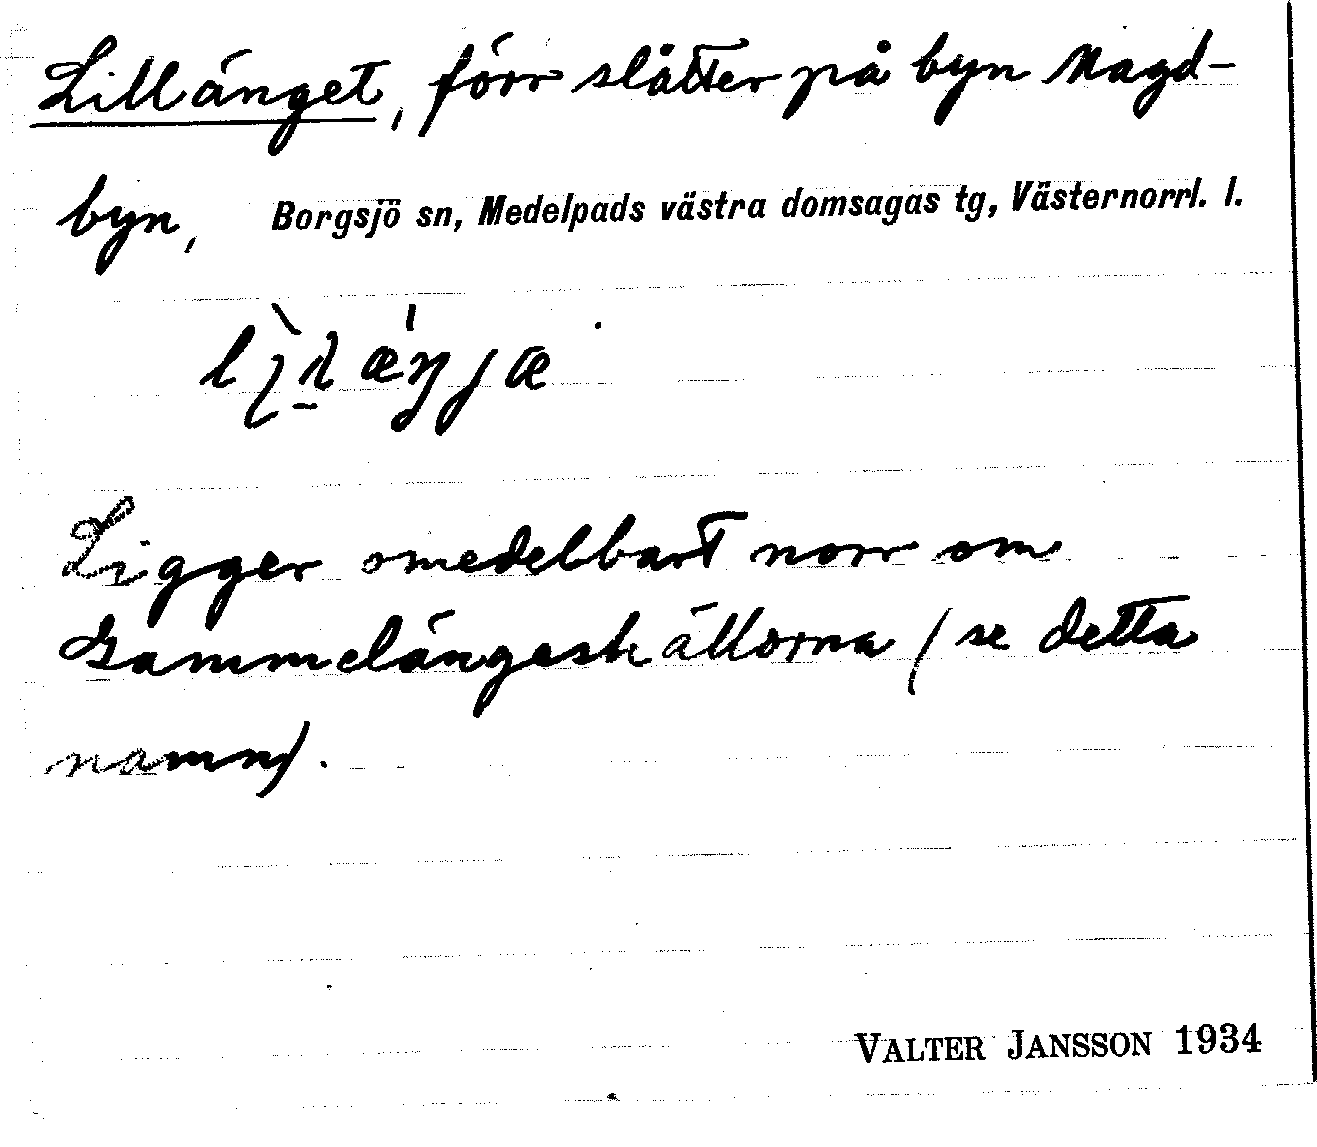 Lillänget, förr slåtter på byn Magd-
byn, Borgsjö sn, Medelpads västra domsagas tg, Västernorrl. l.
Ligger omedelbart norr om
Gammelängeskällorna (se detta
namn).
VALTER JANSSON 1934